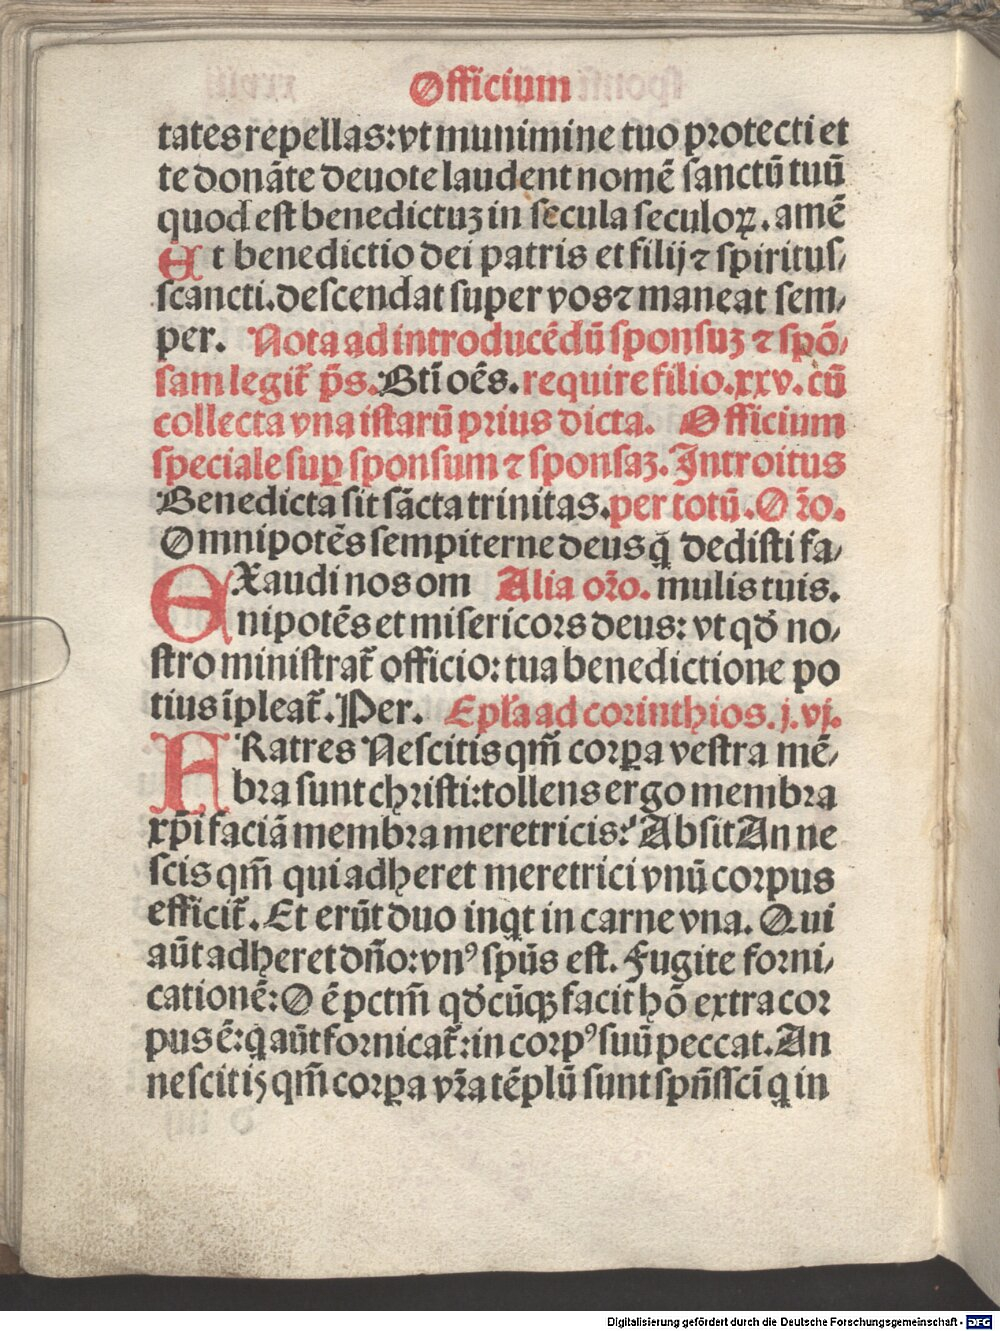 Officium
tates repellas: vt munimine tuo protecti et
te donāte deuote laudent nomē sanctū tuū
quod est benedictuʒ in secula seculoꝝ. amē
Et benedictio dei patris et filij ⁊ spiritus/
scancti. descendat super vos ⁊ maneat sem/
per. Nota ad introducēdū sponsuʒ ⁊ spō/
sam legit̄ p̄s. Bt̄i oēs. require filio. xxv. cū
collecta vna istarū prius dicta. Officium
speciale suꝑ sponsum ⁊ sponsaʒ. Introitus
Benedicta sit sācta trinitas. per totū. Or̄o.
Omnipotēs sempiterne deus q̄ dedisti fa/
EXaudi nos om Alia or̄o. mulis tuis.
nipotēs et misericors deus: vt qđ no/
stro ministrat̄ officio: tua benedictione po
tius īpleat̄. Per. Epl̄a ad corinthios. j. vj.
FRatres Nescitis qm̄ corꝑa vestra mē/
bra sunt christi: tollens ergo membra
xp̄i faciā membra meretricis? Absit An ne
scis qm̄ qui adheret meretrici vnū corpus
efficit̄. Et erūt duo inqt in carne vna. Qui
aūt adheret dn̄o: vnꝰ sp̄us est. Fugite forni/
cationē: O ē pctm̄ qđcūqꝫ facit hō extra cor
pus ē: q aūt fornicat̄: in corpꝰ suū peccat. An
nescitis qm̄ corꝑa vr̄a tēplū sunt spūssci q in
Digitalisierung gefördert durch die Deutsche Forschungsgemeinschaft - DFG